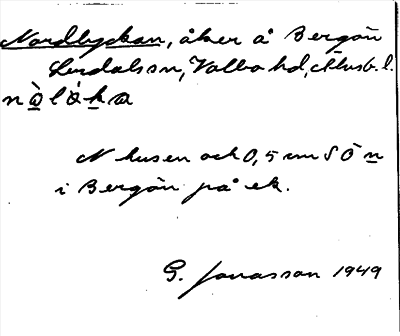 Nordlyckan, åker å Bergön
Lerdalssn, Valbo hd, Älvsb. l.
nò̱lɔ́ḵa
N husen och 0,5 cm SÖ n
i Bergön på ek.
G. Jonasson 1949